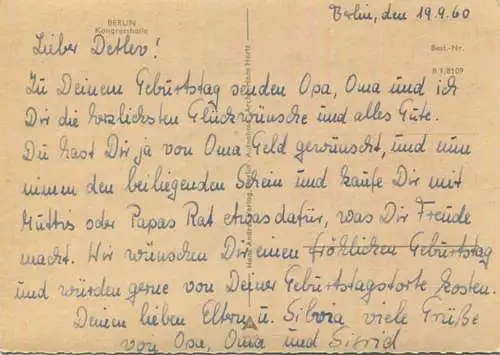 Berlin, den 19.9.60
BERLIN
Kongresshalle
Best.-Nr.
B 1/8109
Lieber Detlev!
Zu Deinem Geburtstag senden Opa, Oma und ich
Dir die herzlichsten Glückwünsche und alles Gute.
Du hast Dir ja von Oma Geld gewünscht, und nun
nimm den beiliegenden Schein und kaufe Dir mit
Muttis oder Papas Rat etwas dafür, was Dir Freude
macht. Wir wünschen Dir einen fröhlichen Geburtstag
und würden gerne von Deiner Geburtstagstorte kosten.
Deinen lieben Eltern u. Silvia viele Grüße
von Opa, Oma und Sigrid
Hans Andres Verlag, Berlin Aufnahme: Archiv Hans Hartz